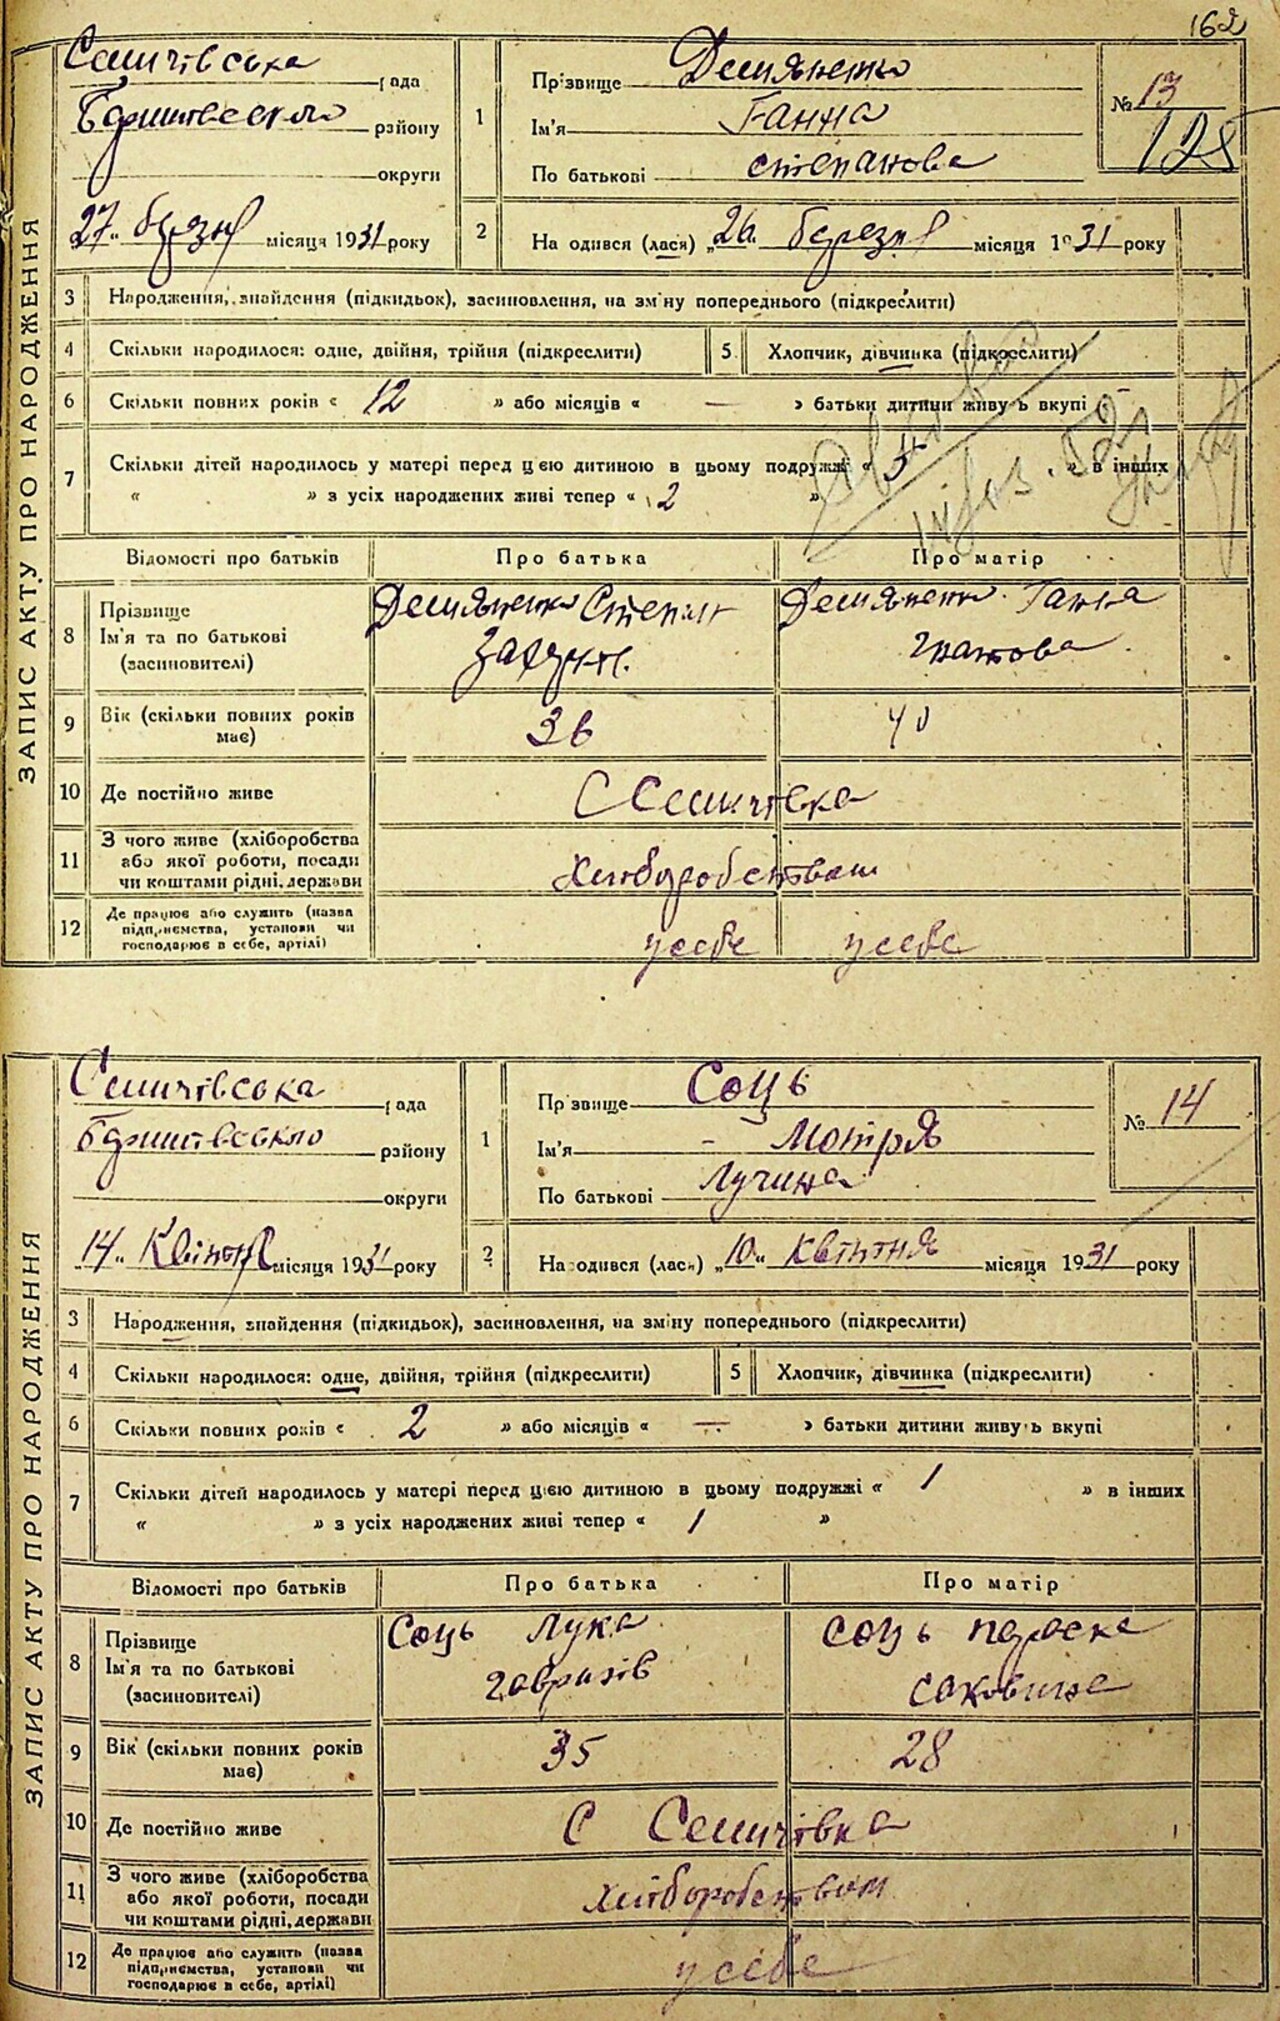 162
ЗАПИС АКТУ ПРО НАРОДЖЕННЯ
Семичівська рада
району
округи
27 березня місяця 1931 року
1
Прізвище Демяненко
Ім'я Ганна
По батькові степанова
№ 13
128
2
На одився (лася) „26 березня місяця 1931 року
3 Народження, знайдення (підкидьок), засиновлення, на зміну попереднього (підкреслити)
4 Скільки народилося: одне, двійня, трійня (підкреслити) 5 Хлопчик, дівчинка (підкреслити)
6 Скільки повних років « 12 » або місяців « — » батьки дитини живуть вкупі
7 Скільки дітей народилось у матері перед цією дитиною в цьому подружжі « 3 » в інших
« » з усіх народжених живі тепер « 2 »
Відомості про батьків Про батька Про матір
8 Прізвище Ім'я та по батькові (засиновителі)
Демяненко Степан
Демяненко Ганна
гнатова
9 Вік (скільки повних років має) 36 40
10 Де постійно живе С Семичівка
11 З чого живе (хліборобства або якої роботи, посади чи коштами рідні, держави хліборобством
12 Де працює або служить (назва підприємства, установи чи господарює в себе, артілі) у себе у себе
ЗАПИС АКТУ ПРО НАРОДЖЕННЯ
Семичівська рада
району
округи
„14" Квітня місяця 1931 року
1
Прізвище Соць
Ім'я – Мотря
По батькові Лучина
№ 14
2
На одився (лася) „10" квітня місяця 1931 року
3 Народження, знайдення (підкидьок), засиновлення, на зміну попереднього (підкреслити)
4 Скільки народилося: одне, двійня, трійня (підкреслити) 5 Хлопчик, дівчинка (підкреслити)
6 Скільки повних років « 2 » або місяців « — » батьки дитини живуть вкупі
7 Скільки дітей народилось у матері перед цією дитиною в цьому подружжі « 1 » в інших
« » з усіх народжених живі тепер « 1 »
Відомості про батьків Про батька Про матір
8 Прізвище Ім'я та по батькові (засиновителі)
Соць Лука
гаврилів
Соць Параска
саковина
9 Вік (скільки повних років має) 35 28
10 Де постійно живе С Семичівка
11 З чого живе (хліборобства або якої роботи, посади чи коштами рідні, держави хліборобством
12 Де працює або служить (назва підприємства, установи чи господарює в себе, артілі) у себе